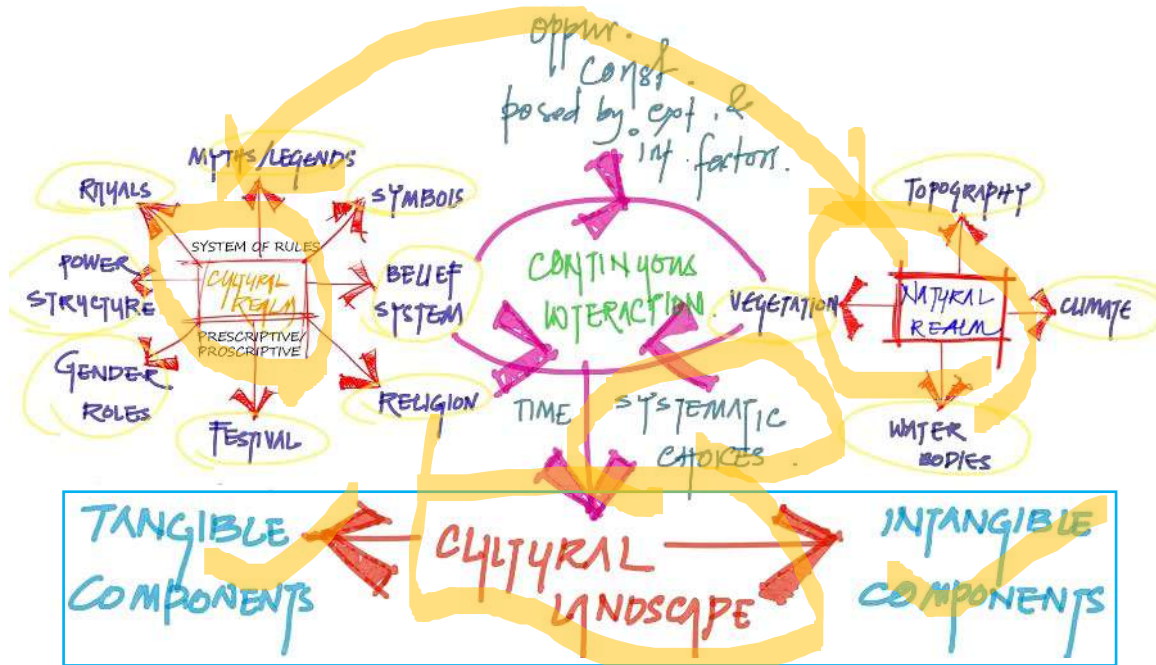 oppur.
const.
posed by ext. &
int. factors.
MYTHS/LEGENDS
RITUALS
SYMBOLS
SYSTEM OF RULES
POWER
STRUCTURE
CULTURAL
REALM
BELIEF
SYSTEM
PRESCRIPTIVE/
PROSCRIPTIVE
GENDER
ROLES
RELIGION
FESTIVAL
CONTINUOUS
INTERACTION
TIME
SYSTEMATIC
CHOICES.
TOPOGRAPHY
VEGETATION
NATURAL
REALM
CLIMATE
WATER
BODIES
TANGIBLE
COMPONENTS
CULTURAL
LANDSCAPE
INTANGIBLE
COMPONENTS